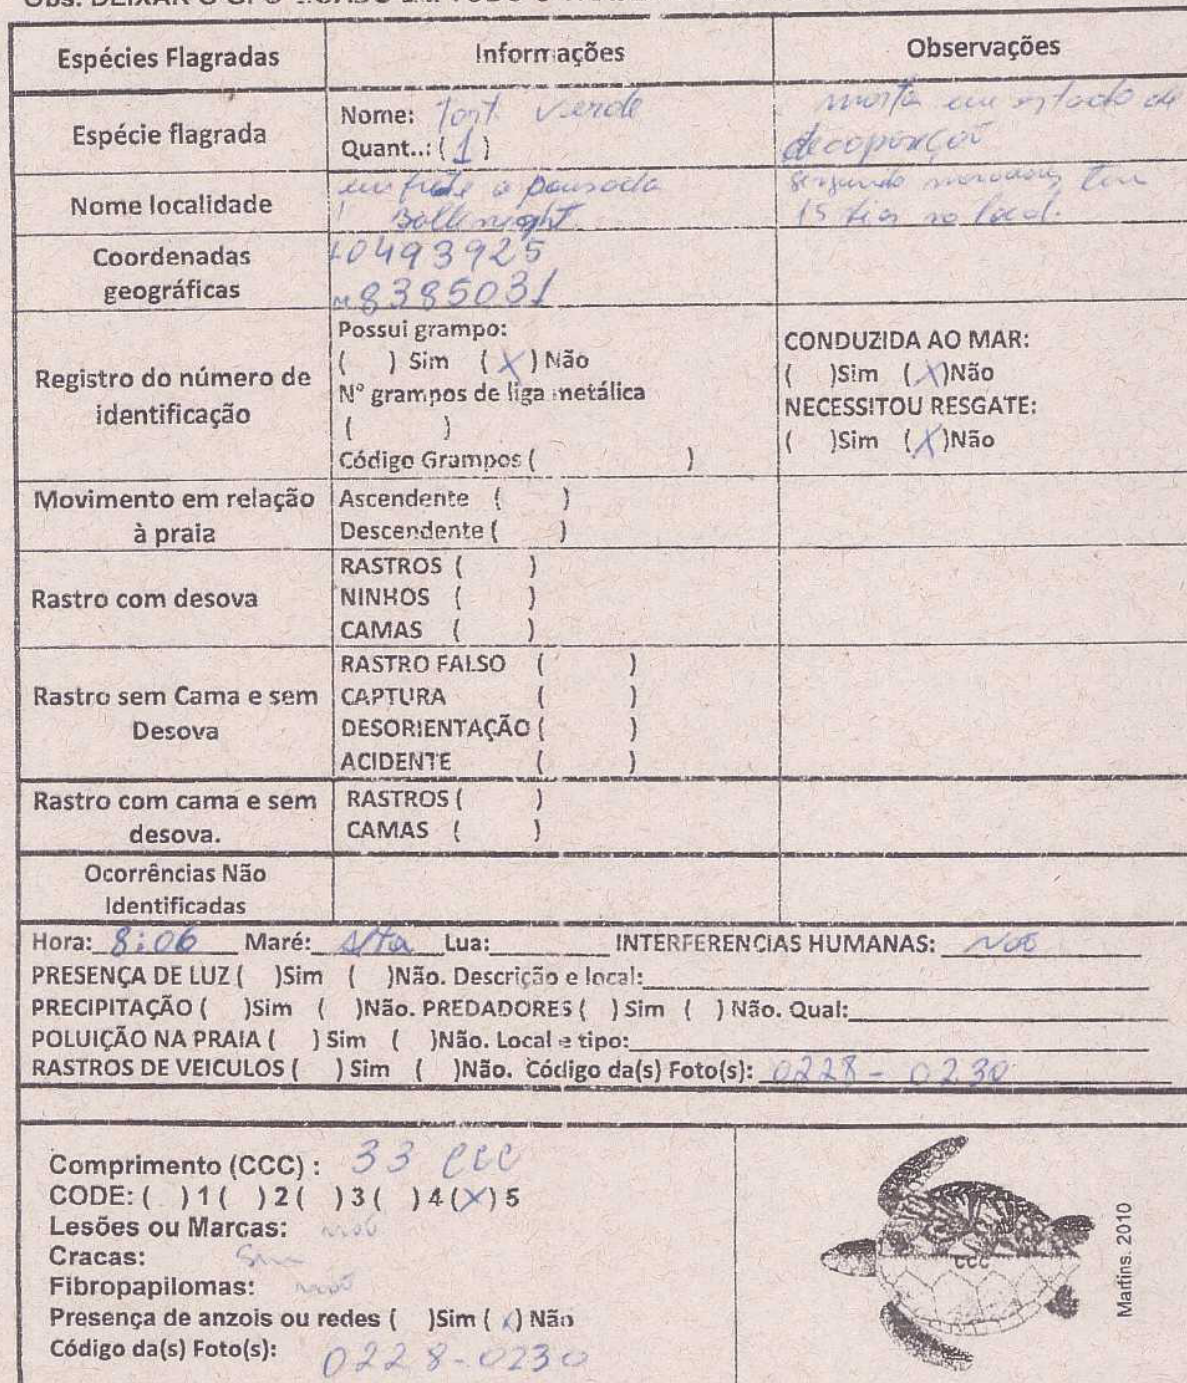 Obs. DEIXAR O GPS LIGADO EM TODO O
Espécies Flagradas Informações Observações
Espécie flagrada
Nome: Tart. Verde
Quant..: ( 1 )
morta em estado de
decoposição
Nome localidade
em frete a pousada
segundo moradores, tem
15 dias no local.
Coordenadas
geográficas
0493925
8385031
Registro do número de
identificação
Possui grampo:
( ) Sim ( X ) Não
N° grampos de liga metálica
( )
Código Grampos ( )
CONDUZIDA AO MAR:
( )Sim (X)Não
NECESSITOU RESGATE:
( )Sim (X)Não
Movimento em relação
à praia
Ascendente ( )
Descendente ( )
Rastro com desova
RASTROS ( )
NINHOS ( )
CAMAS ( )
Rastro sem Cama e sem
Desova
RASTRO FALSO ( )
CAPTURA ( )
DESORIENTAÇÃO ( )
ACIDENTE ( )
Rastro com cama e sem
desova.
RASTROS ( )
CAMAS ( )
Ocorrências Não
Identificadas
Hora: 8:06 Maré: Alta Lua:______ INTERFERENCIAS HUMANAS: Não
PRESENÇA DE LUZ ( )Sim ( )Não. Descrição e local:
PRECIPITAÇÃO ( )Sim ( )Não. PREDADORES ( ) Sim ( ) Não. Qual:
POLUIÇÃO NA PRAIA ( ) Sim ( )Não. Local e tipo:
RASTROS DE VEICULOS ( ) Sim ( )Não. Código da(s) Foto(s): 0228 - 0230
Comprimento (CCC) : 33 CCC
CODE: ( ) 1 ( ) 2 ( ) 3 ( ) 4 (X) 5
Lesões ou Marcas: não
Cracas: Sim
Fibropapilomas: não
Presença de anzois ou redes ( )Sim ( X) Não
Código da(s) Foto(s): 0228-0230
CCC
Martins. 2010